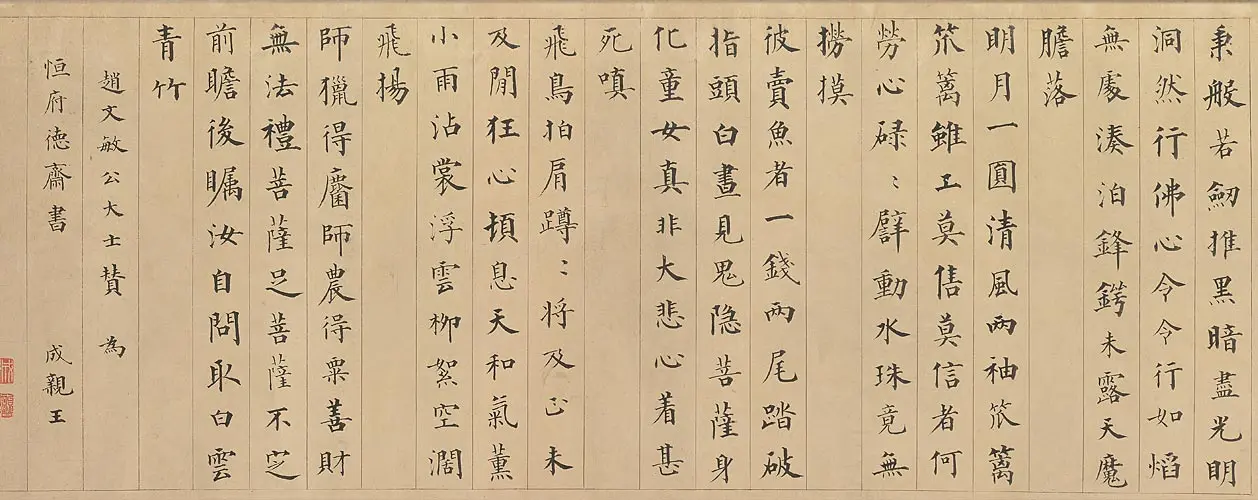 秉般若劒推黑暗盡光明
洞然行佛心令令行如熖
無處湊泊鋒鍔未露天魔
膽落
明月一圓清風兩袖笊篱
笊篱雖工莫售莫信者何
勞心碌〻擘動水珠竟無
撈摸
彼賣魚者一錢兩尾踏破
指頭白晝見鬼隐菩薩身
化童女真非大悲心着甚
死嗔
飛鳥拍肩蹲〻將及正未
及間狂心頓息天和氣薰
小雨沾裳浮雲柳絮空濶
飛揚
師獵得麕師農得粟善財
無法禮菩薩足菩薩不定
前瞻後瞩汝自問取白雲
青竹
趙文敏公大士賛 為
恒府徳齋書 成親王